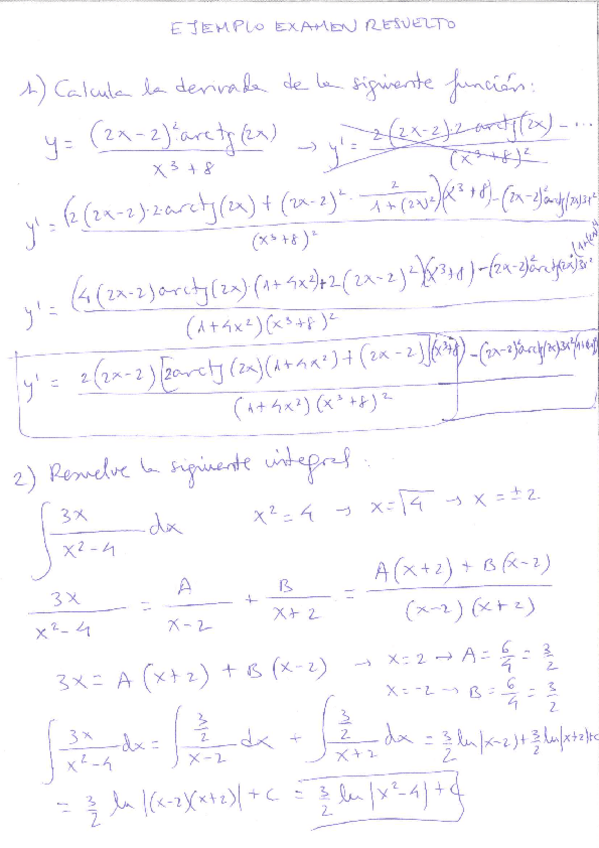 EJEMPLO EXAMEN RESUELTO
1) Calcula la derivada de la siguiente función:
y = (2x-2)² arctg(2x) / (x³+8) → y' = 2(2x-2)·2 arctg(2x) - ... / (x³+8)²
y' = (2(2x-2)·2arctg(2x) + (2x-2)² · 2/(1+(2x)²))(x³+8) - (2x-2)² arctg(2x)3x² / (x³+8)²
y' = (4(2x-2)arctg(2x)·(1+4x²)+2(2x-2)²)(x³+8) - (2x-2)² arctg(2x)3x²·(1+4x²) / (1+4x²)(x³+8)²
y' = 2(2x-2)[2arctg(2x)(1+4x²)+(2x-2)](x³+8) - (2x-2)² arctg(2x)3x²(1+4x²) / (1+4x²)(x³+8)²
2) Resuelve la siguiente integral:
∫ 3x/(x²-4) dx x²=4 → x=√4 → x=±2
3x/(x²-4) = A/(x-2) + B/(x+2) = A(x+2)+B(x-2) / (x-2)(x+2)
3x = A(x+2) + B(x-2) → x=2 → A = 6/4 = 3/2
x=-2 → B = 6/4 = 3/2
∫ 3x/(x²-4) dx = ∫ (3/2)/(x-2) dx + ∫ (3/2)/(x+2) dx = 3/2 ln|x-2| + 3/2 ln|x+2| + C
= 3/2 ln|(x-2)(x+2)| + C = 3/2 ln|x²-4| + C